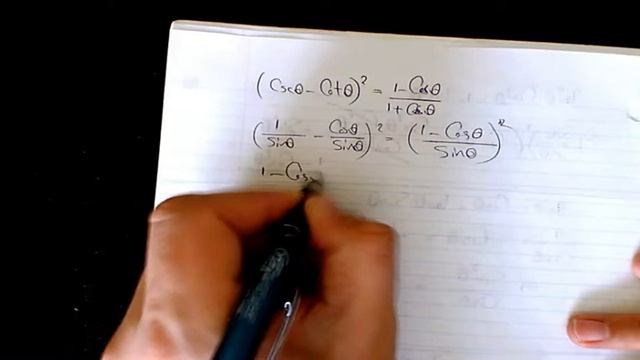 (Cscθ - Cotθ)² = 1 - Cosθ / 1 + Cosθ
(1/Sinθ - Cosθ/Sinθ)² = (1 - Cosθ / Sinθ)²
1 - Cos